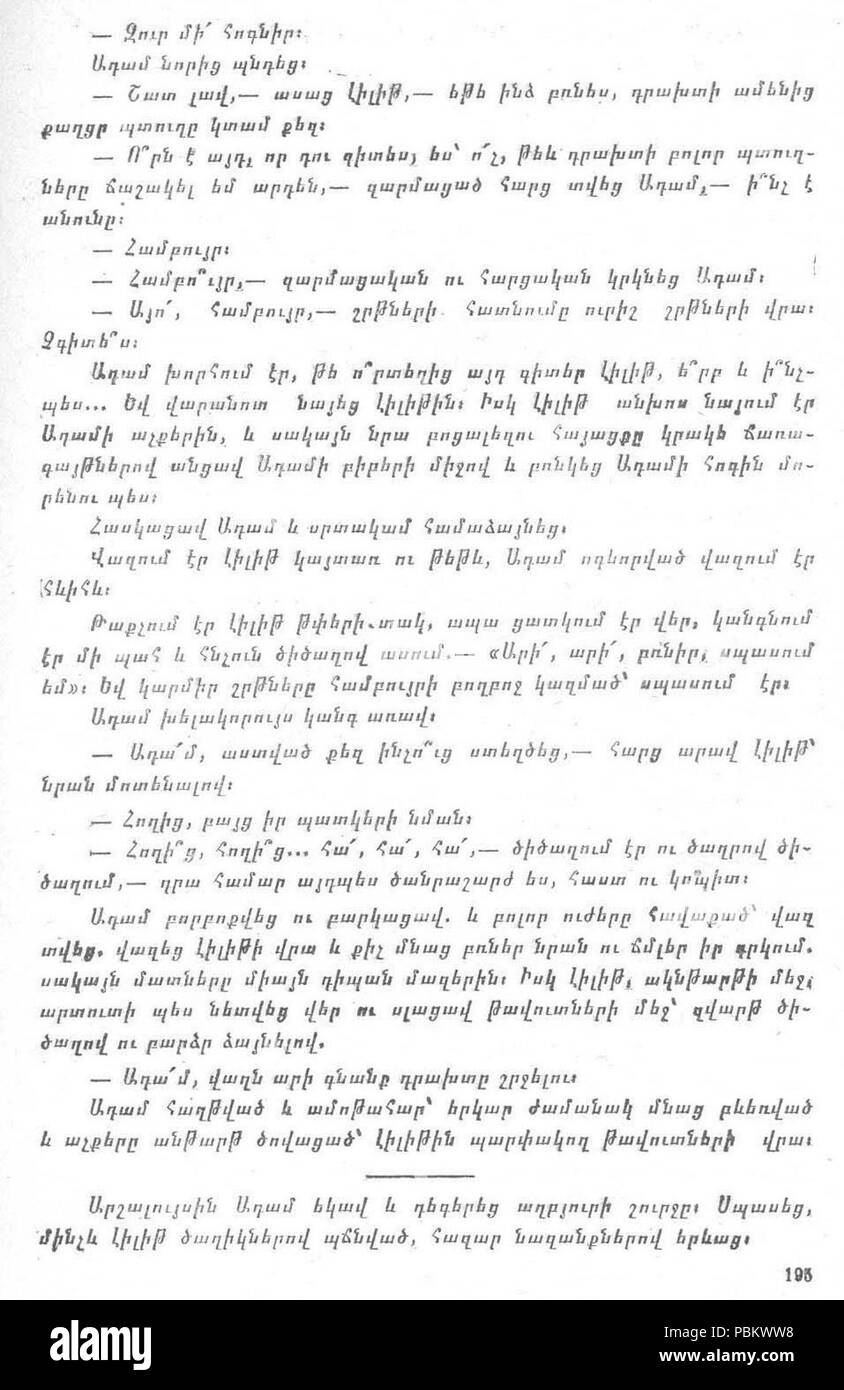 — Զուր մի՛ հոգնիր։
Ադամ նորից պնդեց։
— Շատ լավ,— ասաց Լիլիթ,— եթե ինձ բռնես, դրախտի ամենից
քաղցր պտուղը կտամ քեզ։
— Ո՞րն է այդ, որ դու գիտես, ես՝ ո՛չ, թեև դրախտի բոլոր պտուղ-
ները ճաշակել եմ արդեն,— զարմացած հարց տվեց Ադամ,— ի՞նչ է
անունը։
— Համբույր։
— Համբո՞ւյր,— զարմացական ու հարցական կրկնեց Ադամ։
— Այո՛, համբույր,— շրթների հատնումը ուրիշ շրթների վրա։
Չգիտե՞ս։
Ադամ խորհում էր, թե ո՞րտեղից այդ գիտեր Լիլիթ, ե՞րբ և ի՞նչ-
պես... Եվ վարանոտ նայեց Լիլիթին։ Իսկ Լիլիթ անխոս նայում էր
Ադամի աչքերին, և սակայն նրա բոցալեզու հայացքը կրակե ճառա-
գայթներով անցավ Ադամի բիբերի միջով և բռնկեց Ադամի հոգին մո-
րենու պես։
Հասկացավ Ադամ և սրտակամ համաձայնեց։
Վազում էր Լիլիթ կայտառ ու թեթև, Ադամ ոգևորված վազում էր
հևիհև։
Թաքչում էր Լիլիթ թփերի տակ, ապա ցատկում էր վեր, կանգնում
էր մի պահ և հնչուն ծիծաղով ասում.— «Արի՛, արի՛, բռնիր, սպասում
եմ»։ Եվ կարմիր շրթները համբույրի բողբոջ կազմած՝ սպասում էր։
Ադամ խելակորույս կանգ առավ։
— Ադա՛մ, աստված քեզ ինչո՞ւց ստեղծեց,— հարց արավ Լիլիթ՝
նրան մոտենալով։
— Հողից, բայց իր պատկերի նման։
— Հողի՞ց, հողի՞ց... հա՛, հա՛, հա՛,— ծիծաղում էր ու ծաղրով ծի-
ծաղում,— դրա համար այդպես ծանրաշարժ ես, հաստ ու կոպիտ։
Ադամ բորբոքվեց ու բարկացավ. և բոլոր ուժերը հավաքած՝ վազ
տվեց. վազեց Լիլիթի վրա և քիչ մնաց բռներ նրան ու ճմլեր իր գրկում.
սակայն մատները միայն դիպան մազերին։ Իսկ Լիլիթ, ակնթարթի մեջ,
արտուտի պես նետվեց վեր ու սլացավ թավուտների մեջ՝ զվարթ ծի-
ծաղով ու բարձր ձայնելով.
— Ադա՛մ, վաղն արի գնանք դրախտը շրջելու։
Ադամ հաղթված և ամոթահար՝ երկար ժամանակ մնաց բևեռված
և աչքերը անթարթ ծովացած՝ Լիլիթին պարփակող թավուտների վրա։
Արշալույսին Ադամ եկավ և դեգերեց աղբյուրի շուրջը։ Սպասեց,
մինչև Լիլիթ ծաղիկներով պճնված, հազար նազանքներով երևաց։
195
alamy
Image ID: PBKWW8
www.alamy.com